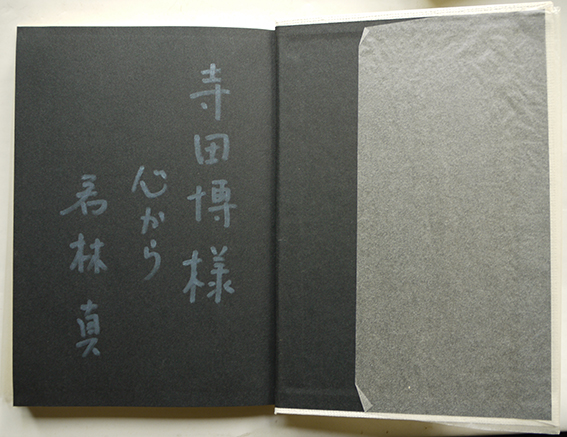 寺田博様
心から
若林真